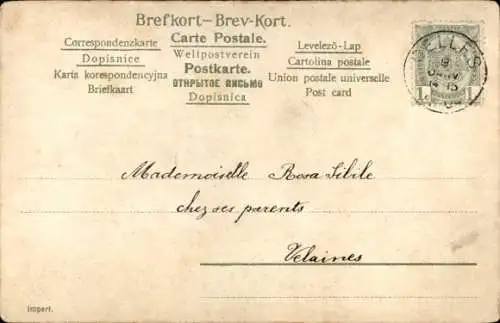 Brefkort–Brev-Kort.
Correspondenzkarte
Dopisnice
Karta korespondencyjna
Briefkaart
Carte Postale.
Weltpostverein
Postkarte.
ОТКРЫТОЕ ПИСЬМО
Dopisnica
Levelező-Lap
Cartolina postale
Union postale universelle
Post card
ELLES
8
14-15
1 1
Mademoiselle Rosa Sibile
chez ses parents
Velaines
Import.